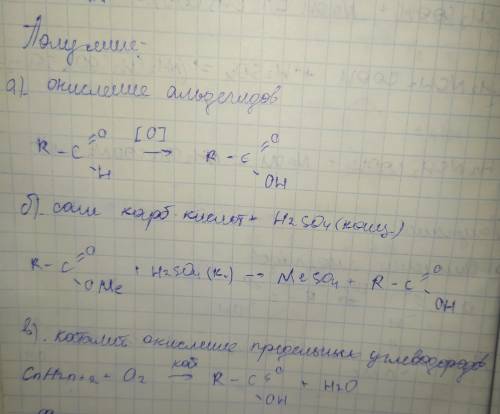 Получение:
а). окисление альдегидов
R - C =O - H [O] → R - C =O - OH
б). соли карб. кислот + H2SO4 (конц.)
R - C =O - OMe + H2SO4 (к.) → MeSO4 + R - C =O - OH
в). каталит окисление предельных углеводородов
CnH2n+2 + O2 кат → R - C =O - OH + H2O